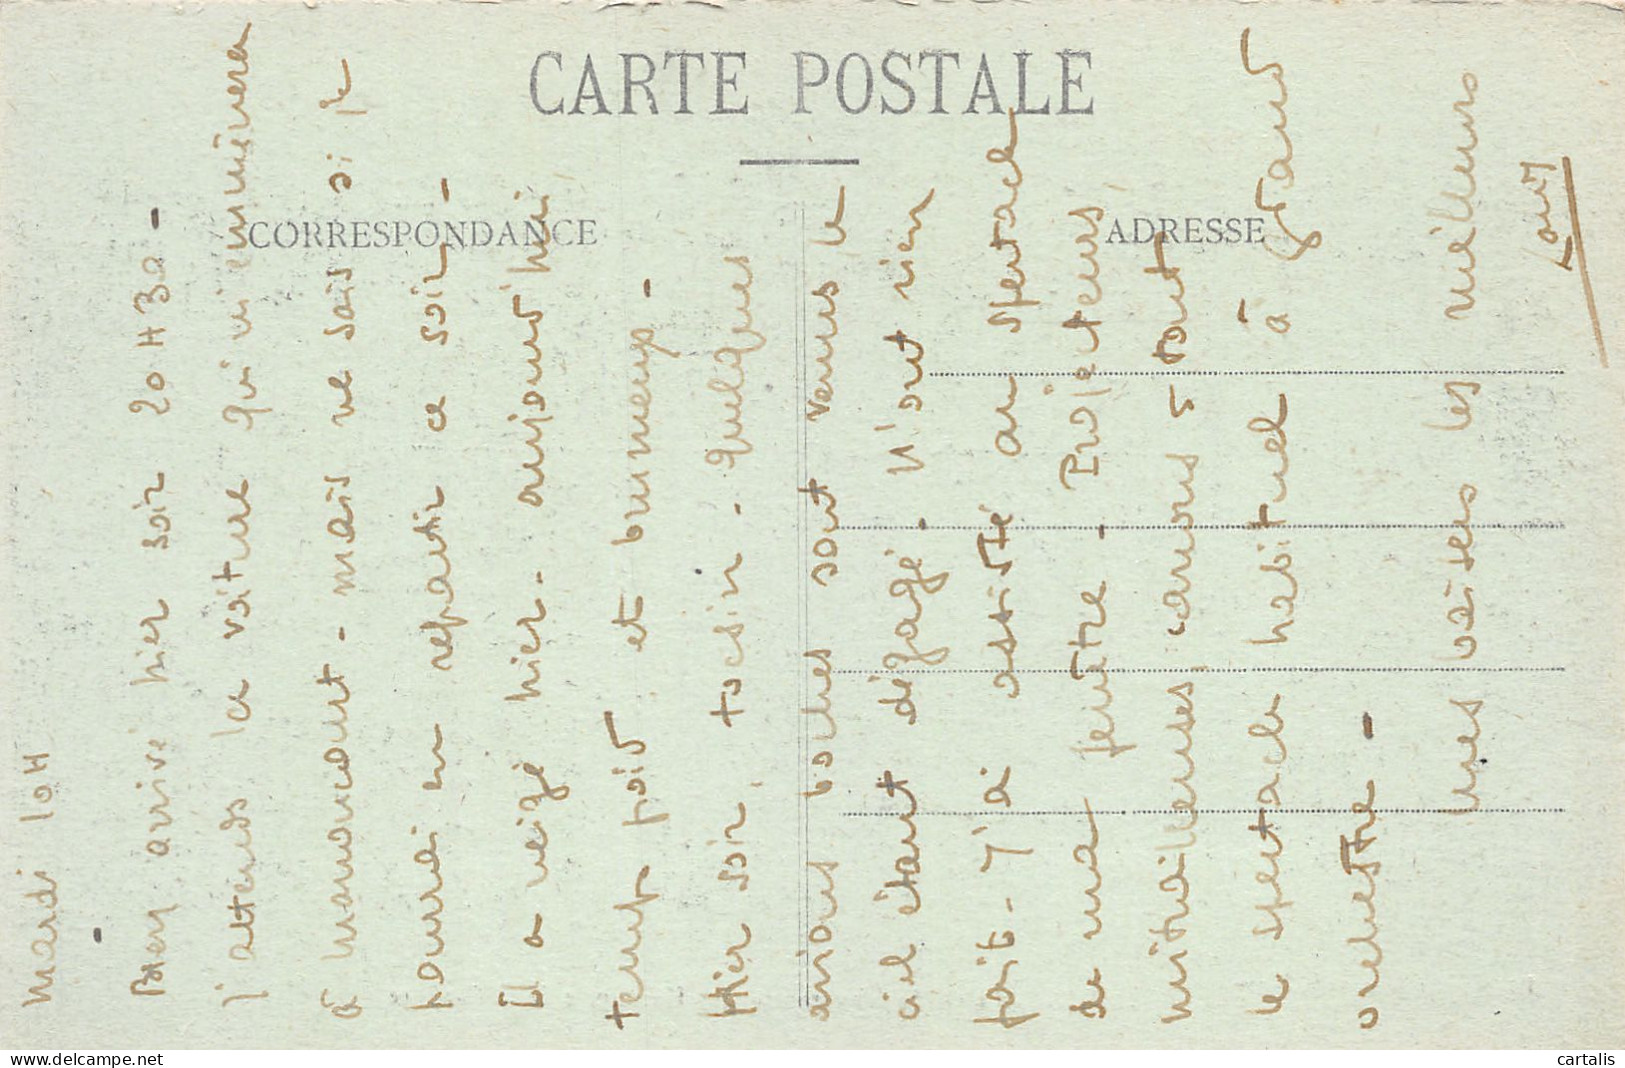 CARTE POSTALE
CORRESPONDANCE
ADRESSE
Mardi 10H
Bien arrivé hier soir 20H30 -
j'attends la voiture qui m'emmènera
à Hanoncourt - mais ne sais si je
pourrai en repartir ce soir -
Il a neigé hier - aujourd'hui
temps froid et brumeux -
Hier soir, tocsin - quelques
avions boches sont venus le
ciel étant dégagé. N'ont rien
fait - J'ai assisté au spectacle
de ma fenêtre - Projecteurs
mitrailleuses canons, tout
le spectacle habituel à grand
orchestre -
mes bâises les meilleurs
Louis
delcampe.net
cartalis